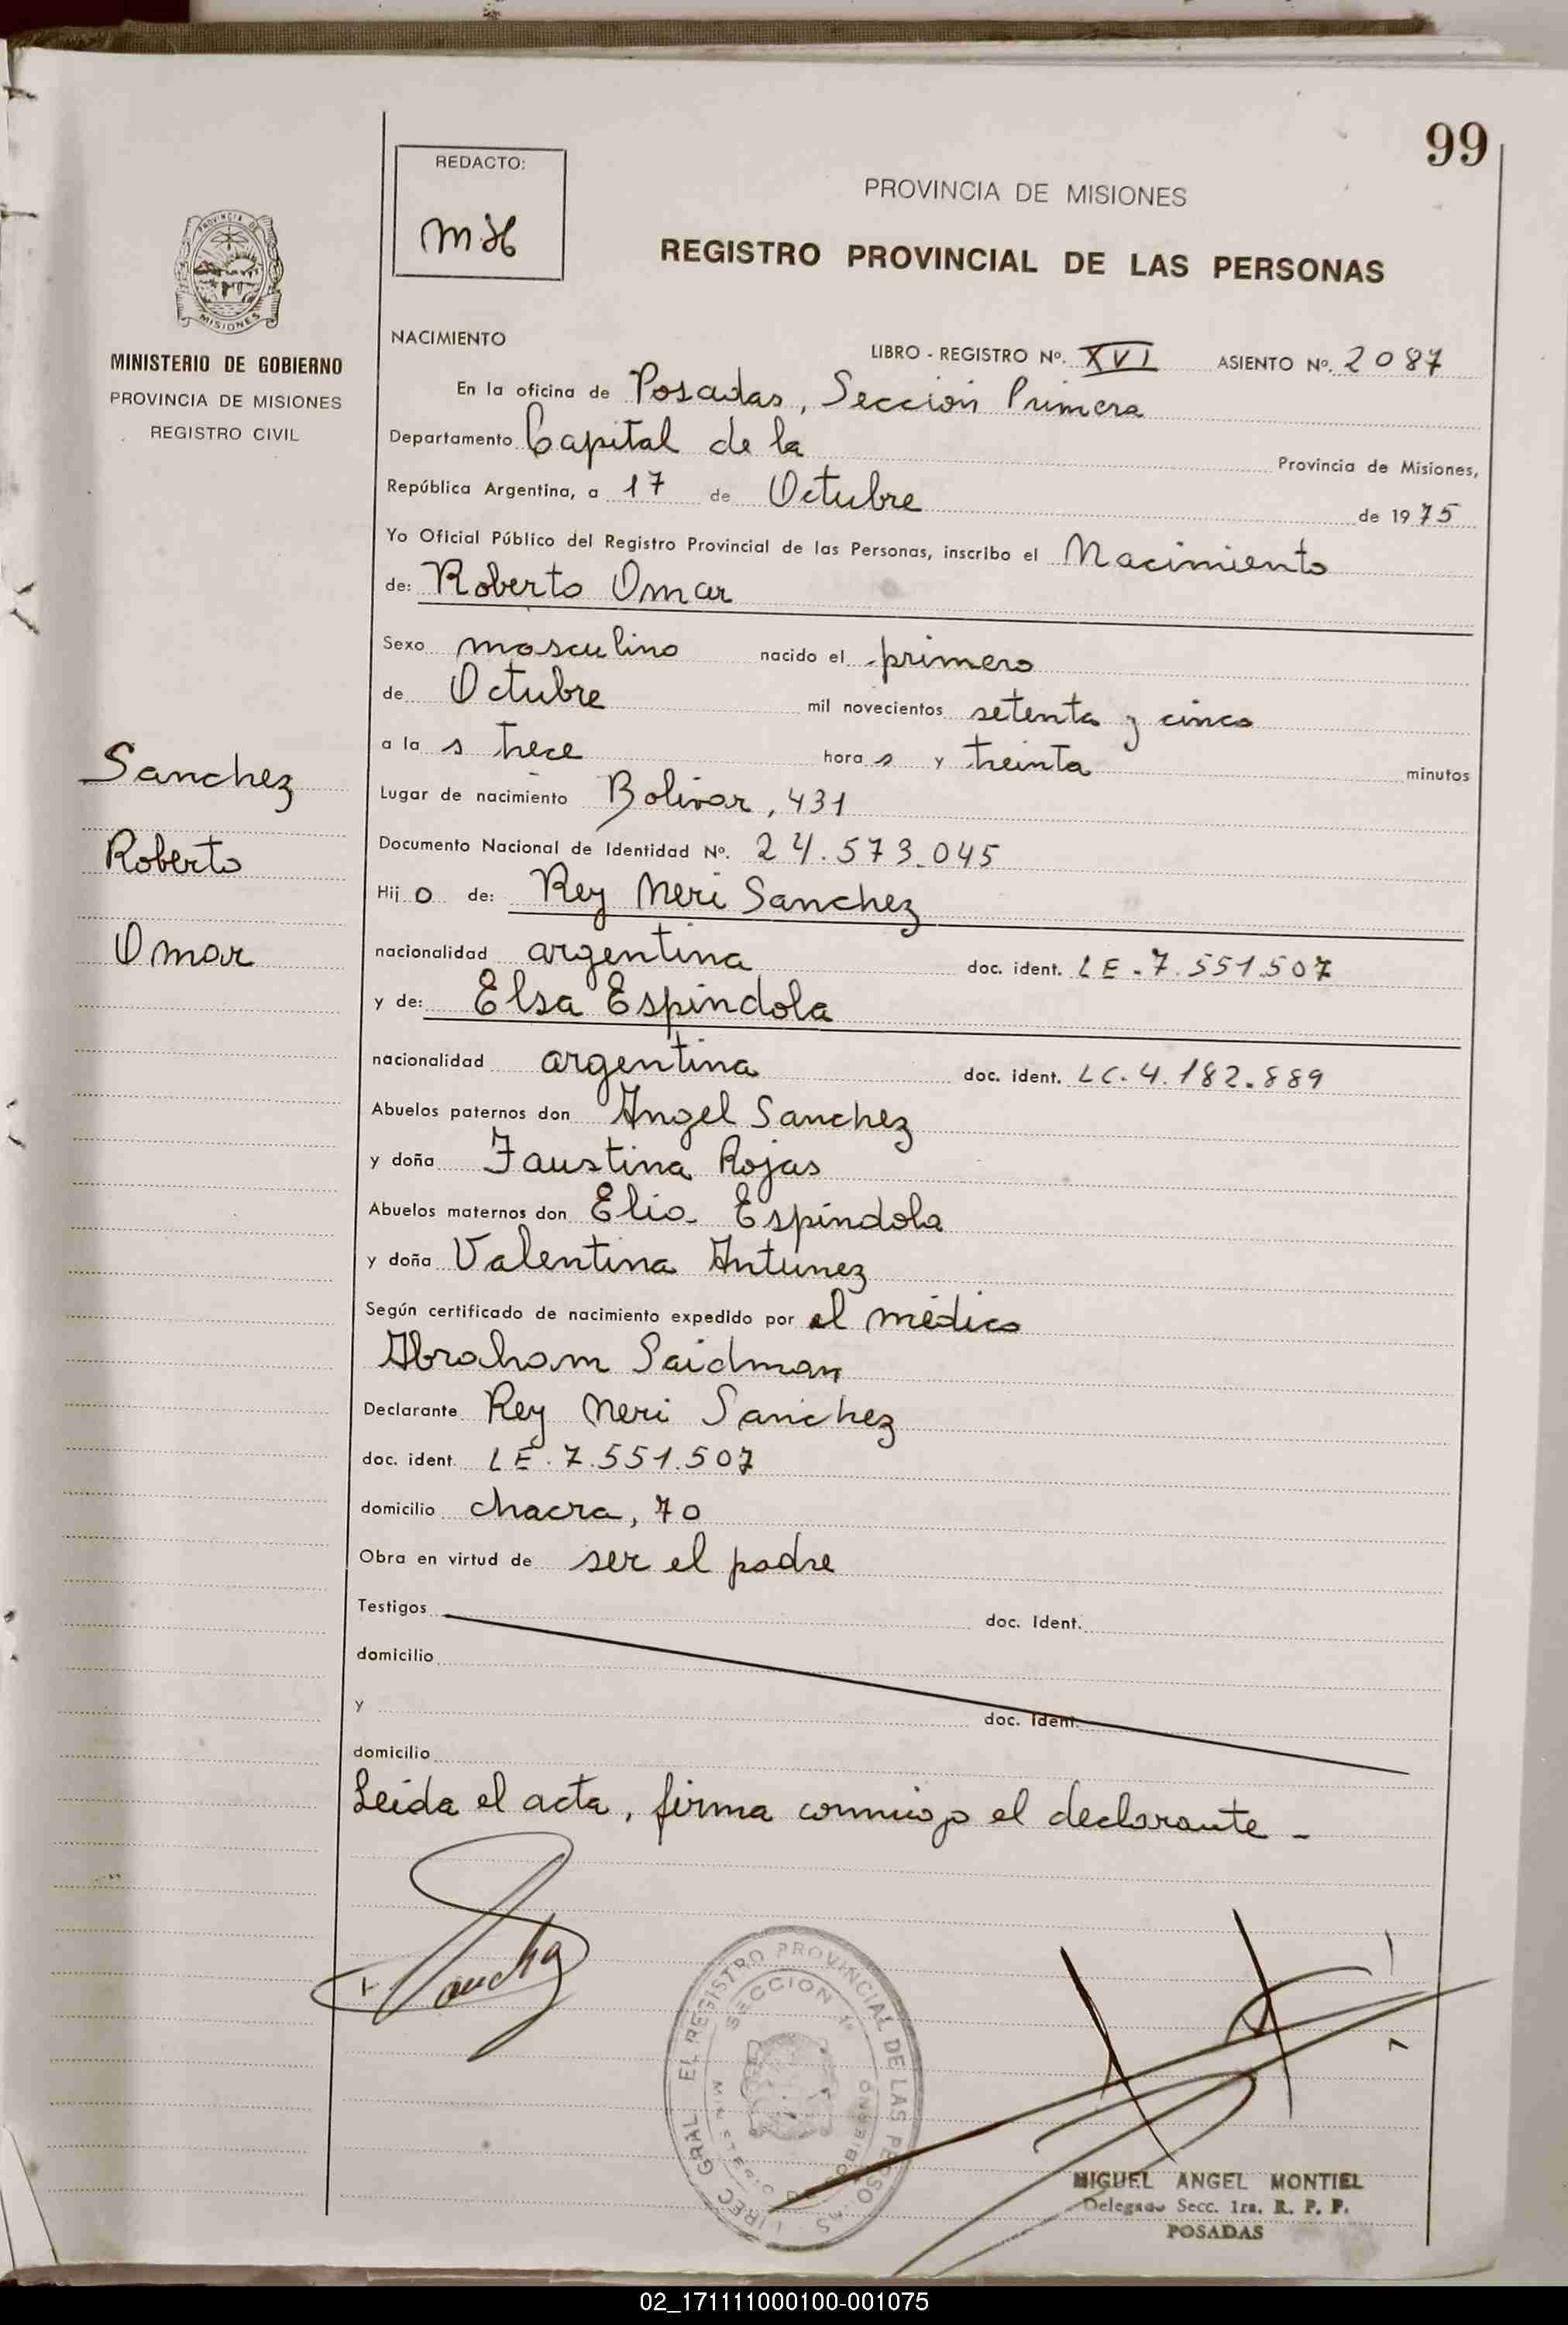 99
REDACTO:
PROVINCIA DE MISIONES
REGISTRO PROVINCIAL DE LAS PERSONAS
PROVINCIA DE
MISIONES
MINISTERIO DE GOBIERNO
PROVINCIA DE MISIONES
REGISTRO CIVIL
NACIMIENTO
LIBRO - REGISTRO Nº. XVI ASIENTO Nº. 2087
En la oficina de Posadas, Sección Primera
Departamento Capital de la Provincia de Misiones,
República Argentina, a 17 de Octubre de 1975
Yo Oficial Público del Registro Provincial de las Personas, inscribo el Nacimiento
de: Roberto Omar
Sexo masculino nacido el primero
de Octubre mil novecientos setenta y cinco
a la s trece hora s y treinta minutos
Lugar de nacimiento Bolivar, 431
Documento Nacional de Identidad Nº. 24.573.045
Hij o de: Rey Neri Sanchez
nacionalidad argentina doc. ident. LE.7.551.507
y de: Elsa Espindola
nacionalidad argentina doc. ident. LC.4.182.889
Abuelos paternos don Angel Sanchez
y doña Faustina Rojas
Abuelos maternos don Elio Espindola
y doña Valentina Antunez
Según certificado de nacimiento expedido por el médico
Abraham Saidman
Declarante Rey Neri Sanchez
doc. ident. LE.7.551.507
domicilio chacra, 70
Obra en virtud de ser el padre
Testigos doc. Ident.
domicilio
y doc. Ident.
domicilio
Leida el acta, firma conmigo el declarante -
Sanchez
Roberto
Omar
EL REGISTRO PROVINCIAL DE LAS
SECCION 1ª
MIGUEL ANGEL MONTIEL
Delegado Secc. 1ra. R. P. P.
POSADAS
02_171111000100-001075